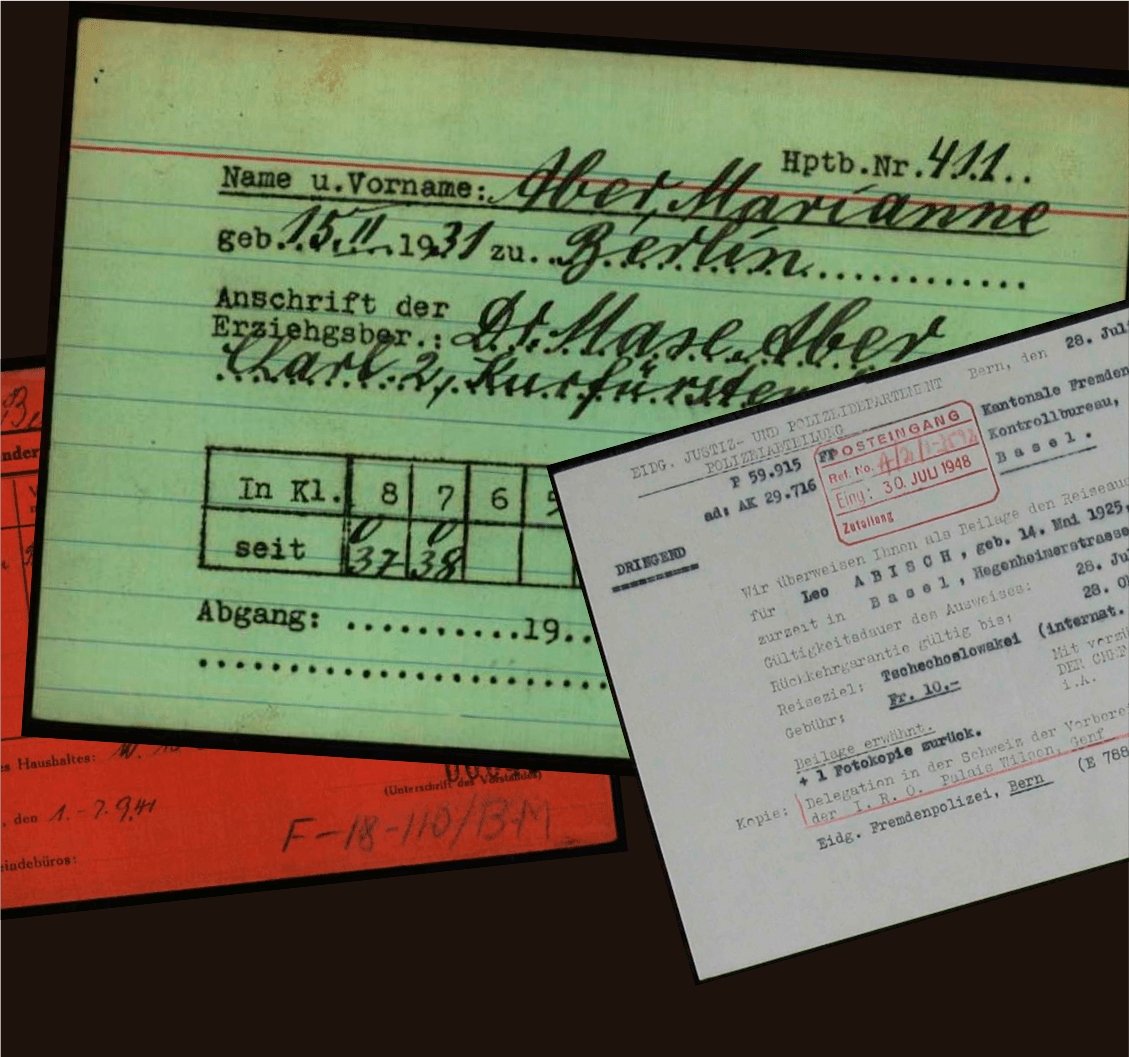 Hptb.Nr. 411..
Name u.Vorname: Aber, Marianne
geb. 15.II. 1931 zu.. Berlin
Anschrift der
Erziehgsber.: Dr. Maxe Aber
Charl. 2, Kurfürsten
In Kl. 8 7 6 5
seit 0 37 0 38
Abgang: ..........19..
es Haushaltes:
(Unterschrift des Vorstandes)
, den 1.-7.9.41
F-18-110/B-M
eindebüros:
Bern, den 28. Jul
EIDG. JUSTIZ- UND POLIZEIDEPARTEMENT
POLIZEIABTEILUNG
P 59.915
ad: AK 29.716
POSTEINGANG
Ref. No.
Eing: 30. JULI 1948
Zuteilung
Kantonale Fremden
Kontrollbureau,
B a s e l .
DRINGEND
Wir überweisen Ihnen als Beilage den Reiseau
für Leo A B I S C H , geb. 14. Mai 1925,
zurzeit in B a s e l , Hegenheimerstrasse
Gültigkeitsdauer des Ausweises: 28. Jul
Rückkehrgarantie gültig bis: 28. Ok
Reiseziel: Tschechoslowakei (internat.
Gebühr: Fr. 10.-
Mit vorzü
DER CHEF
i.A.
Beilage erwähnt.
+ 1 Fotokopie zurück.
Kopie: Delegation in der Schweiz der Vorberei
der I. R. O. Palais Wilson, Genf
Eidg. Fremdenpolizei, Bern (E 788